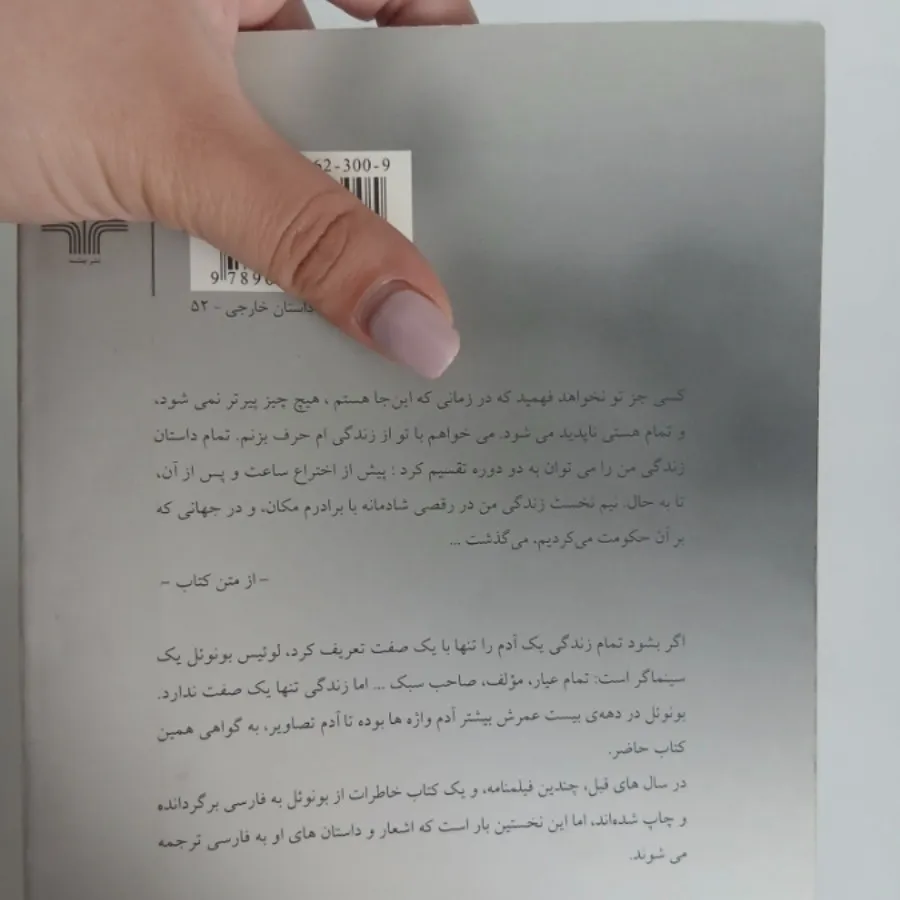 62-300-9
9 789
نشر چشمه
داستان خارجی - ۵۲
کسی جز تو نخواهد فهمید که در زمانی که این‌جا هستم ، هیچ چیز پیرتر نمی شود،
و تمام هستی ناپدید می شود. می خواهم با تو از زندگی ام حرف بزنم. تمام داستان
زندگی من را می توان به دو دوره تقسیم کرد : پیش از اختراع ساعت و پس از آن،
تا به حال. نیم نخست زندگی من در رقصی شادمانه با برادرم مکان، و در جهانی که
بر آن حکومت می‌کردیم، می‌گذشت ...
- از متن کتاب -
اگر بشود تمام زندگی یک آدم را تنها با یک صفت تعریف کرد، لوئیس بونوئل یک
سینماگر است: تمام عیار، مؤلف، صاحب سبک ... اما زندگی تنها یک صفت ندارد.
بونوئل در دهه‌ی بیست عمرش بیشتر آدم واژه ها بوده تا آدم تصاویر، به گواهی همین
کتاب حاضر.
در سال های قبل، چندین فیلمنامه، و یک کتاب خاطرات از بونوئل به فارسی برگردانده
و چاپ شده‌اند، اما این نخستین بار است که اشعار و داستان های او به فارسی ترجمه
می شوند.